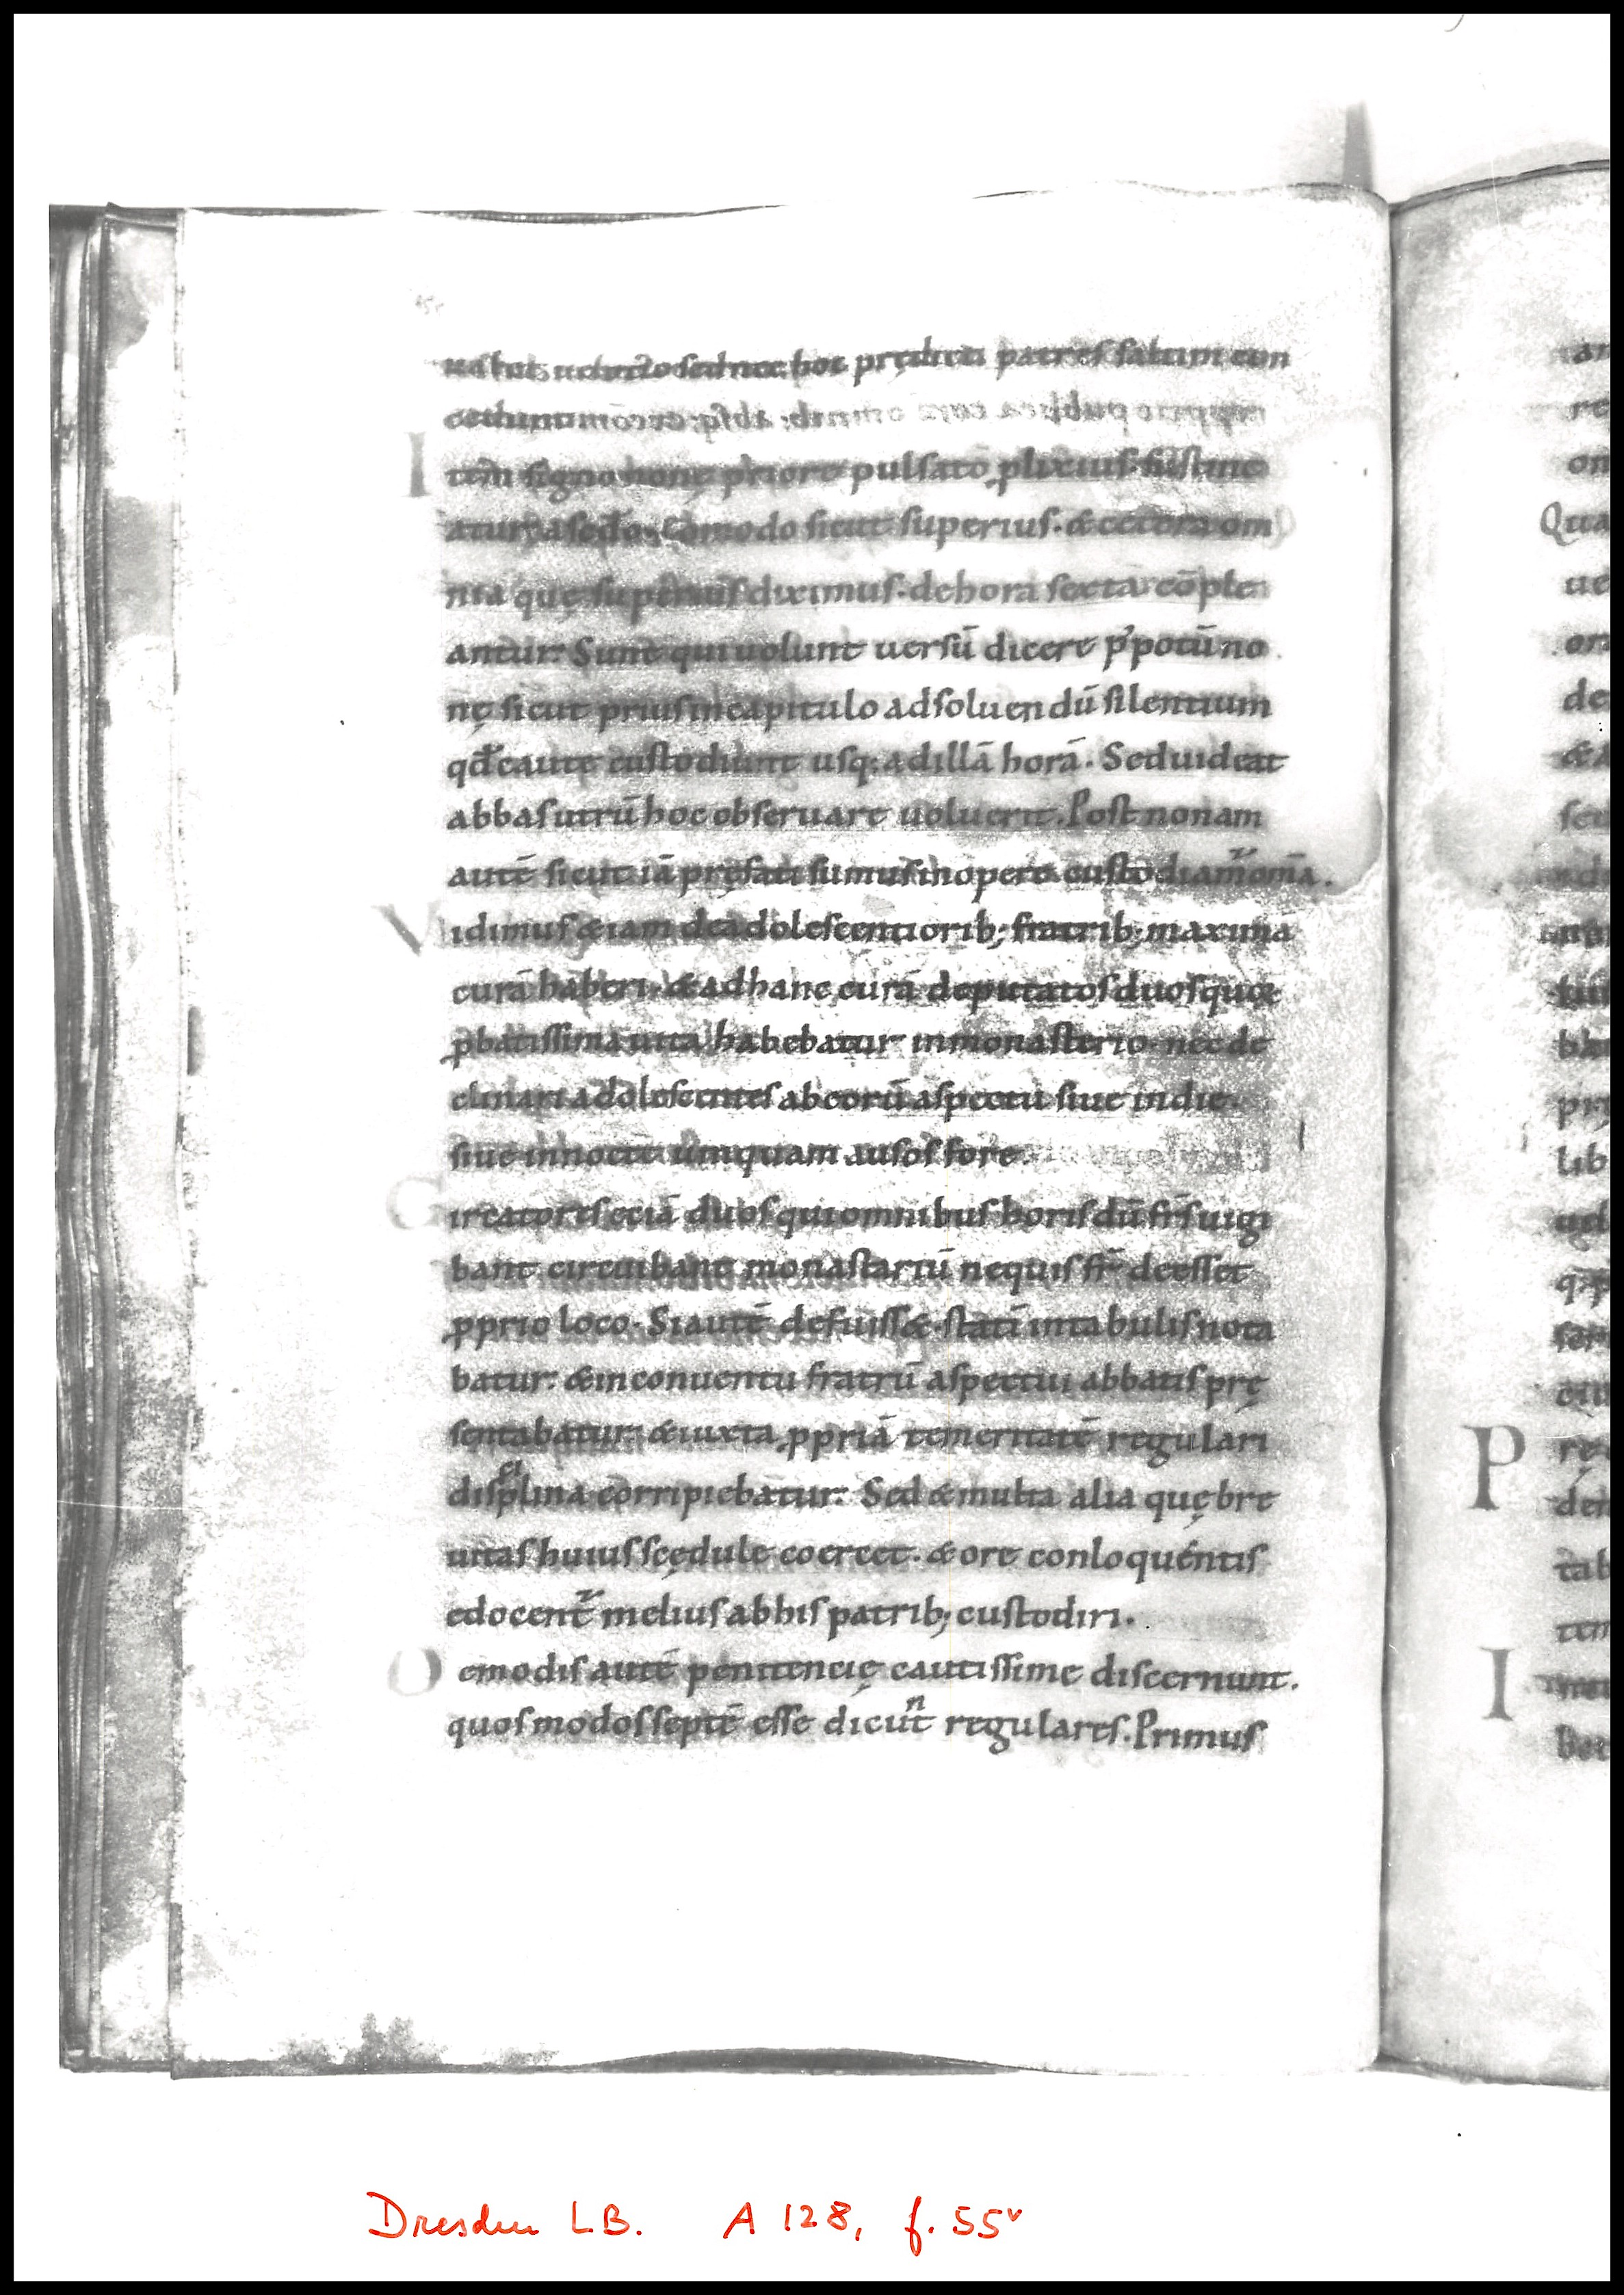 sed nec hoc prędicti patres saltim con
cedunt
Itē signo nonę priore pulsato ꝓlixius sustine
atur a sc̄do. Comodo sicut superius. & cetera om
nia quę superius diximus. de hora sexta cōple
antur. Sunt qui uolunt uersū dicere p̕ potū no
nę sicut prius in capitulo ad soluendū silentium
qđ caute custodiunt usq: ad illā horā. Sed uideat
abbas utrū hoc obseruare uoluerit. Post nonam
autē sicut iā pręfati sumus in opere custodiam̃ om̄a.
Vidimus & iam de adolescentiorib; fratrib; maximā
curā haberi. & ad hanc curā deputatos duos quoꝝ
ꝓbatissima uita habebatur in monasterio. nec de
clinari adolescentes ab eorū aspectu siue in die.
siue in nocte umquam ausos fore.
Circatores eciā duos qui omnibus horis dū fr̄s uigi
bant circuibant monastariū nequis fr̄ deesset
ꝓprio loco. Si autē defuiss&. statī in tabulis nota
batur. & in conuentu fratrū aspectui abbatis prę
sentabatur. & iuxta ꝓpriā temeritatē regulari
disciplina corripiebatur. Sed & multa alia quę bre
uitas huius scędule coercet. & ore conloquentis
edocent̃ melius ab his patrib; custodiri.
De modis autē penitencię cautissime discernunt.
quos modos septē esse dicunt regulares. Primus
Dresden LB. A 128, f. 55v